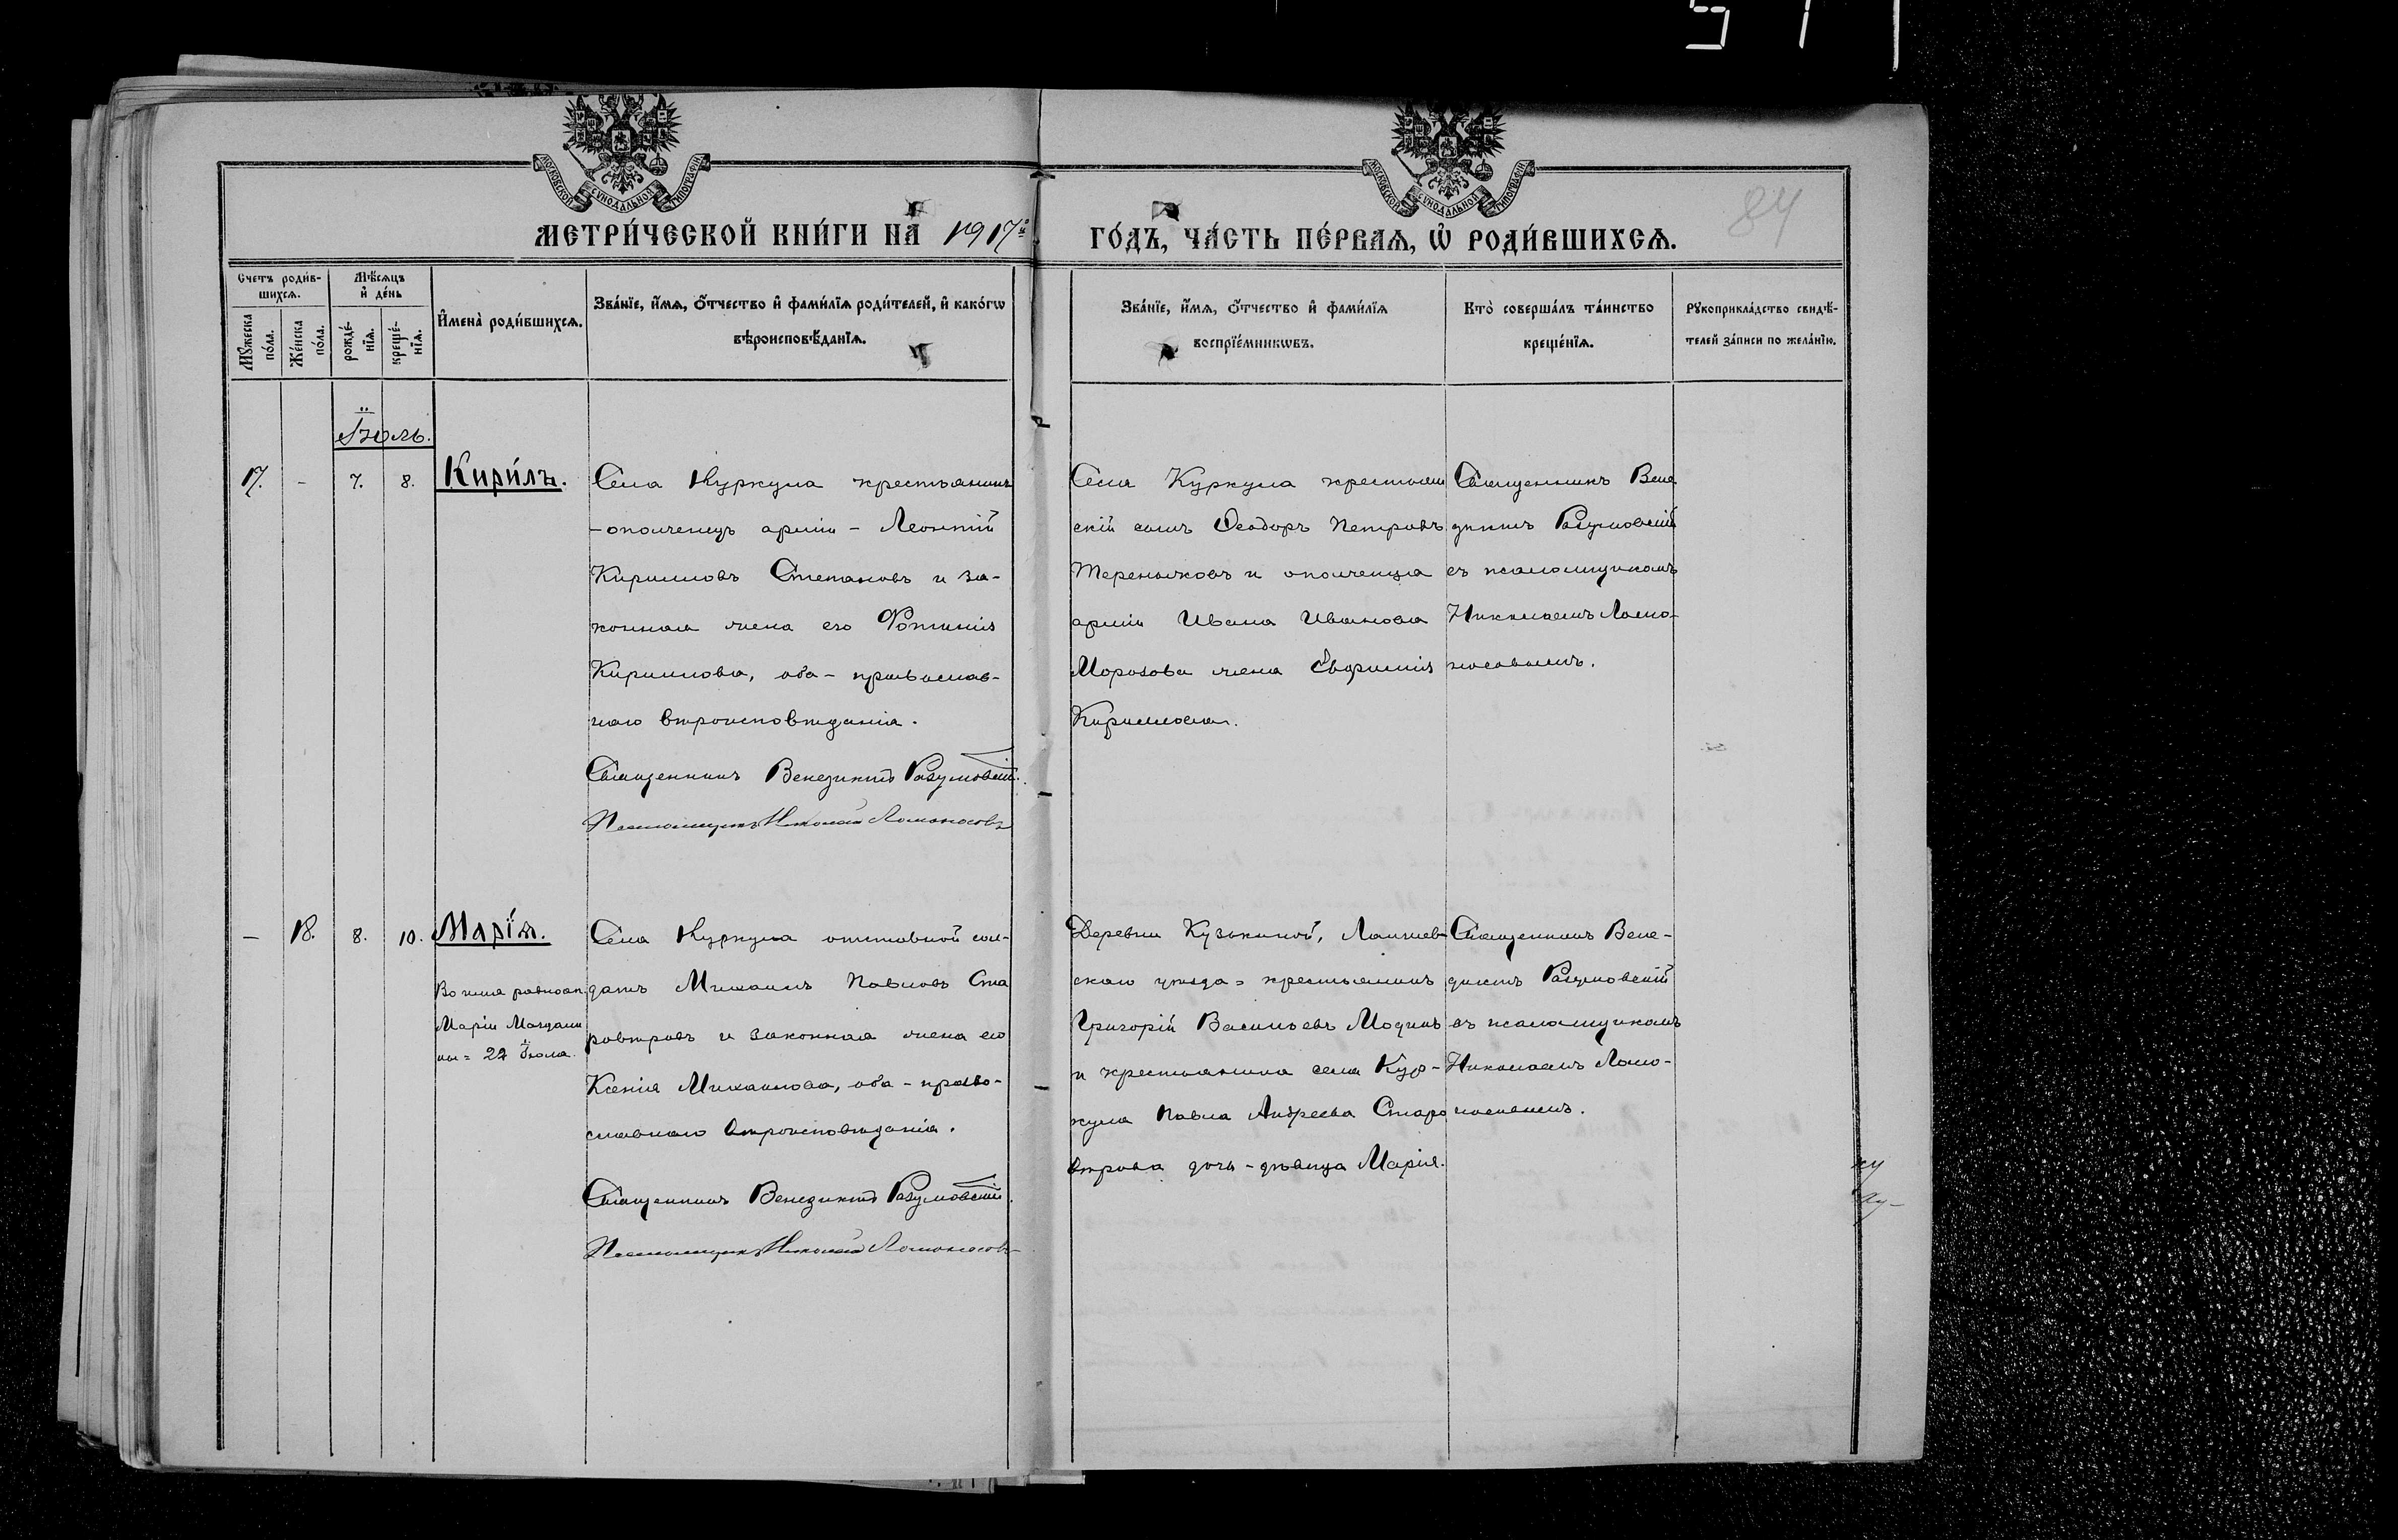 51
МОСКОВСКОЙ СѴНОДАЛЬНОЙ ТИПОГРАФІИ
МОСКОВСКОЙ СѴНОДАЛЬНОЙ ТИПОГРАФІИ
84
МЕТРИ́ЧЕСКОЙ КНИ́ГИ НА 1917й
ГО́ДЪ, ЧА́СТЬ ПЕ́РВАѦ, Ѡ РОДИ́ВШИХСѦ.
Счетъ роди́в-
шихсѧ.
Мꙋ́жеска по́ла.
Же́нска по́ла.
Мѣ́сѧцъ
и де́нь
рожде́-
нїѧ.
креще́-
нїѧ.
Имена̀ роди́вшихсѧ.
Зва́нїе, и́мѧ, о́тчество и фами́лїѧ роди́телей, и како́гѡ
вѣроисповѣ́данїѧ.
Зва́нїе, и́мѧ, о́тчество и фами́лїѧ
воспрїе́мникѡвъ.
Кто̀ соверша́лъ та́инство
креще́нїѧ.
Рꙋкоприкла́дство свидѣ́-
телей за́писи по жела́нїю.
Іюль.
17. - 7. 8. Кири́лъ.
Села Куркула крестьянинъ
-ополченецъ арміи - Леонтій
Кирилловъ Степановъ и за-
конная жена его Фотинія
Кириллова, оба - православ-
наго вѣроисповѣданія.
Священникъ Венедиктъ Разумовскій.
Псаломщикъ Николай Ломоносовъ
Села Куркула крестьян
скій сынъ Ѳеодоръ Петровъ
Тереньковъ и ополченца
арміи Ивана Иванова
Морозова жена Евфимія
Кириллова.
Священникъ Вене
диктъ Разумовскій
съ псаломщикомъ
Николаемъ Ломо-
носовымъ.
— 18. 8. 10. Марі́я.
Во имя равноап.
Маріи Магдали
ны = 22 Іюля.
Села Куркула отставной сол-
датъ Михаилъ Павловъ Ста
ровѣровъ и законная жена его
Ксенія Михаилова, оба - право-
славнаго вѣроисповѣданія.
Священникъ Венедиктъ Разумовскій.
Псаломщикъ Николай Ломоносовъ
Деревни Кузькиной, Лаишев-
скаго уѣзда = крестьянинъ
Григорій Васильевъ Модинъ
и крестьянина села Кур-
кула Павла Андреева Старо
вѣрова дочь - дѣвица Марія.
Священникъ Вене-
диктъ Разумовскій
съ псаломщикомъ
Николаемъ Ломо-
носовымъ.